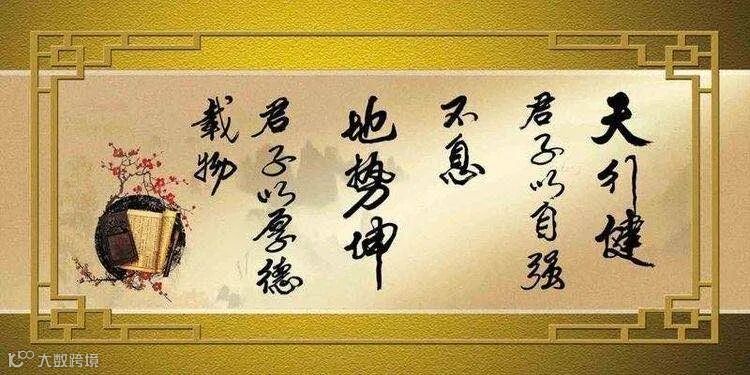 天行健
君子以自强
不息
地势坤
君子以厚德
载物
大数跨境